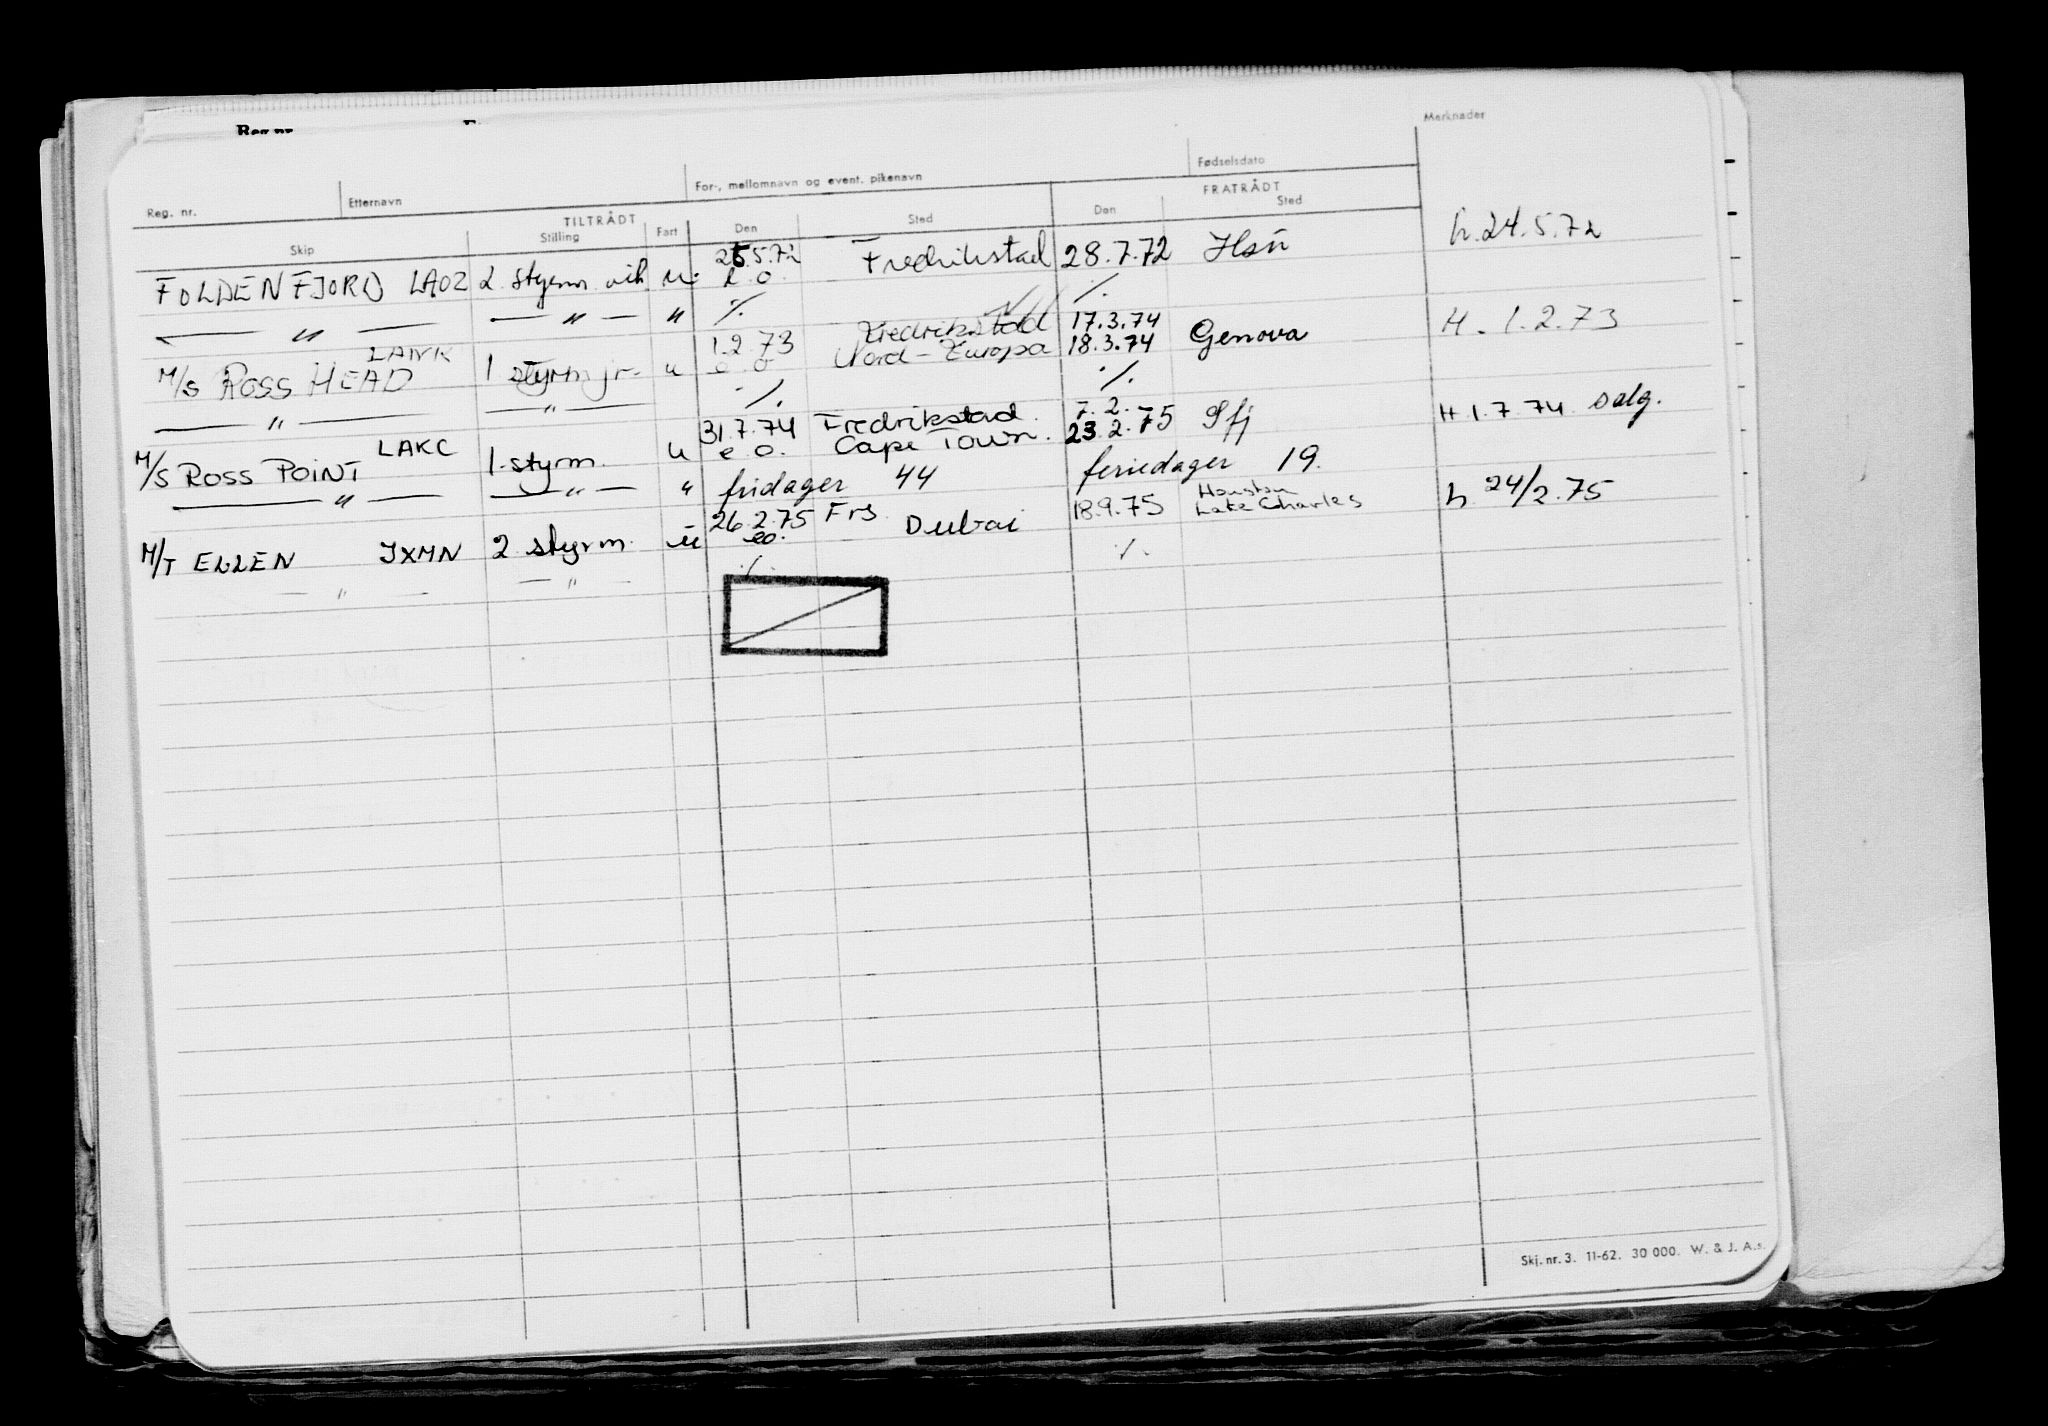 Merknader
Reg. nr. Etternavn For-, mellomnavn og event. pikenavn Fødselsdato
TILTRÅDT FRATRÅDT
Skip Stilling Fart Den Sted Den Sted
25.5.72 h. 24.5.72
FOLDENFJORD LAOZ 2. styrm. vik. u. e.o. Fredrikstad 28.7.72 Hsn
— " — — " — " ·/. ·/.
LAWK 1.2.73 Fredrikstad 17.3.74 H. 1.2.73
M/S ROSS HEAD 1 styrm jr. u e o Nord-Europa 18.3.74 Genova
— " — — " — ·/. ·/.
LAKC 31.7.74 Fredrikstad. 7.2.- H 1.7 74 salg.
M/S ROSS POINT 1. styrm. u e o. Cape Town. 23.2.75 Sfj
— " — — " — " fridager 44 feriedager 19.
26.2.75 Frs Dubai 18.9.75 Houston h. 24/2.75
M/T ELLEN JXMN 2 styrm. u eo. Lake Charles
— " — — " — ·/. ·/.
Skj. nr. 3. 11-62. 30 000. W. & J. A.s.